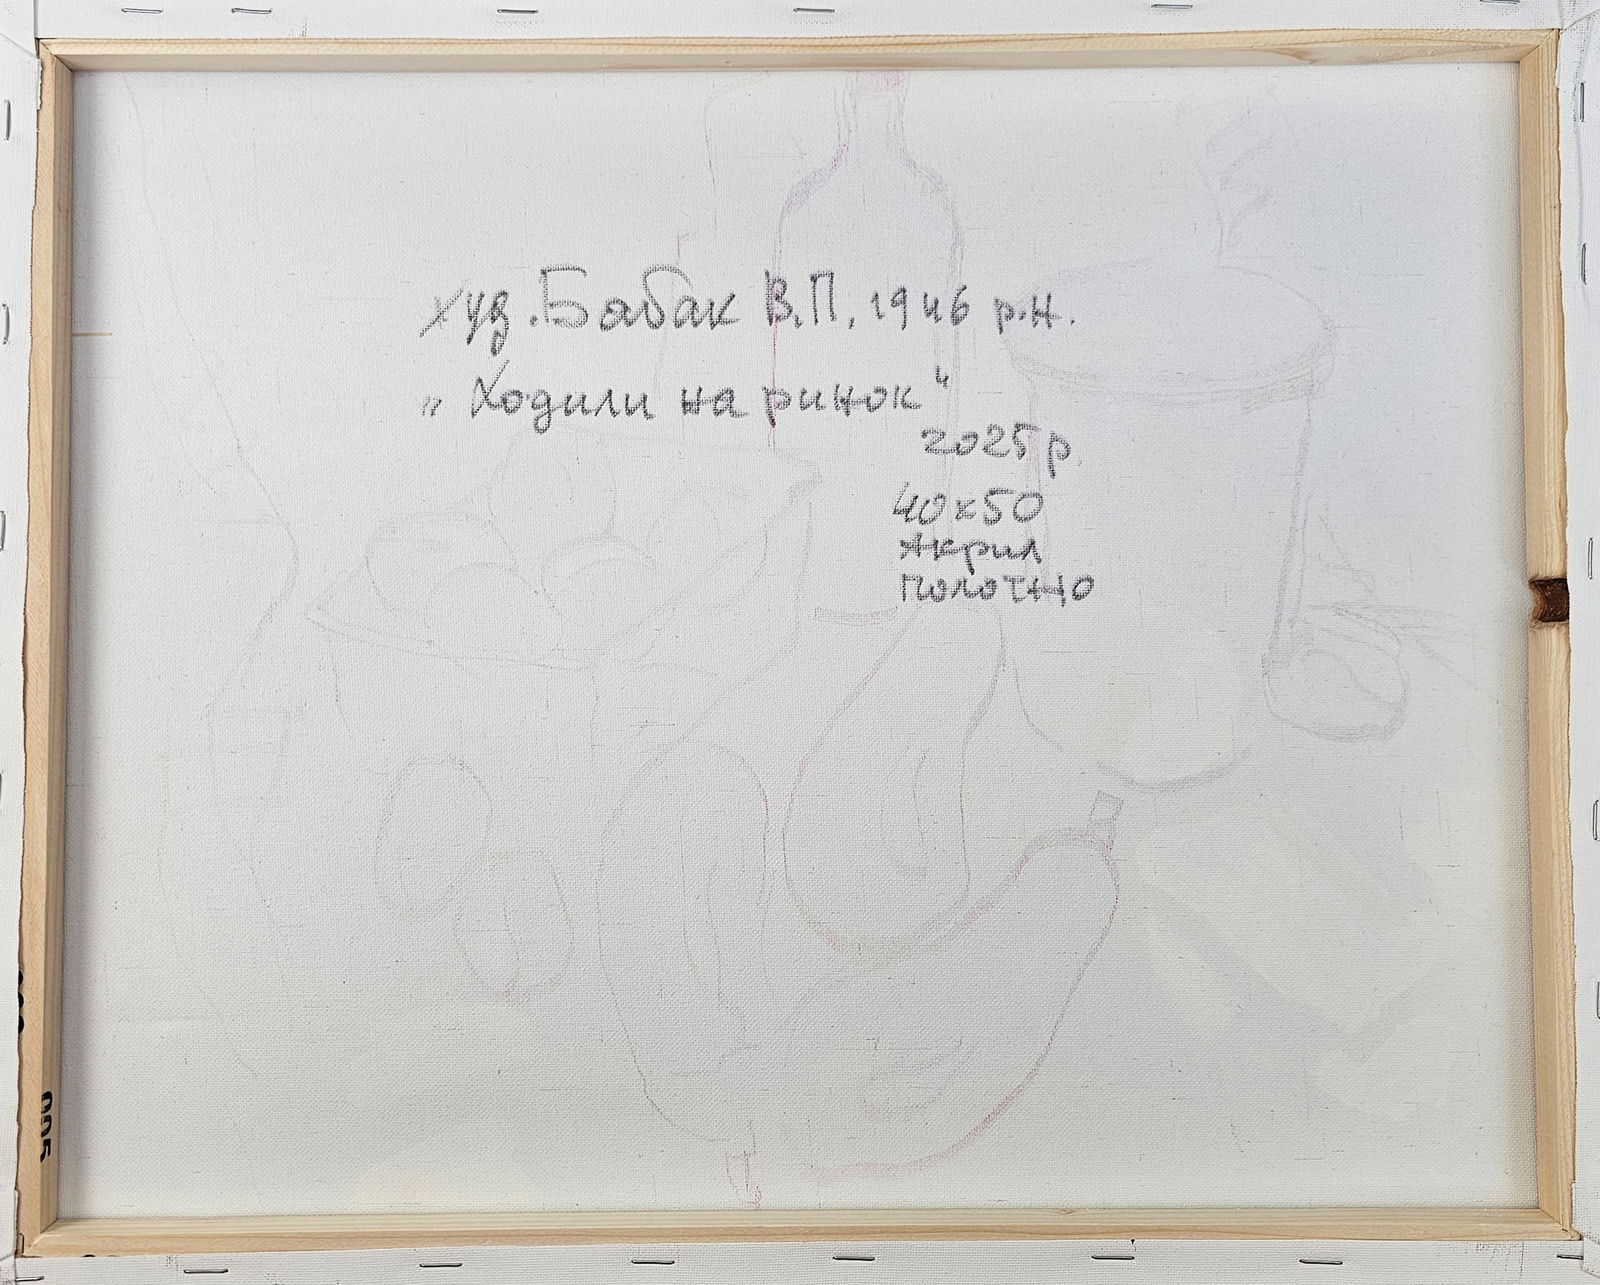 худ. Бабак В.П., 1946 р.н.
„Ходили на ринок"
2025 р.
40х50
Акрил
Полотно
005